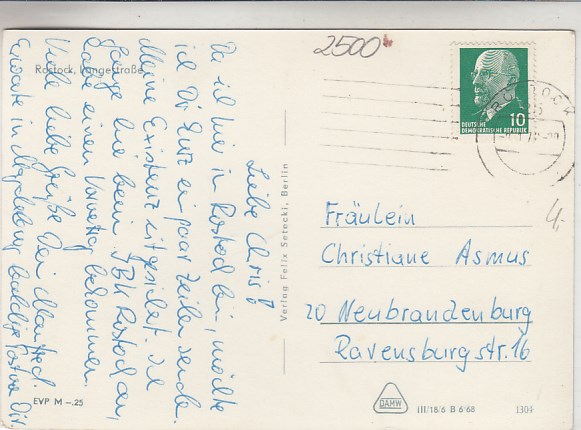 2500
Rostock, Langestraße
Liebe Chris!
Da ich hier in Rostock bin, möchte
ich Dir kurz ein paar Zeilen senden.
Meine Existenz ist gesichert. Ich
fange hier beim IBK Rostock an,
habe einen Vorvertrag bekommen.
Viele liebe Grüße Dein Manfred.
Erwarte in Magdeburg baldige Post von Dir
EVP M –.25
Verlag Felix Setecki, Berlin
10
DEUTSCHE
DEMOKRATISCHE REPUBLIK
ROSTOCK
4,-
Fräulein
Christiane Asmus
20 Neubrandenburg
Ravensburgstr. 16
DAMW
III/18/6 B 6/68
1304